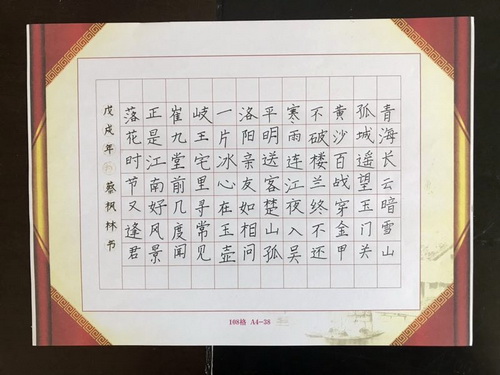 青海长云暗雪山
孤城遥望玉门关
黄沙百战穿金甲
不破楼兰终不还
寒雨连江夜入吴
平明送客楚山孤
洛阳亲友如相问
一片冰心在玉壶
岐王宅里寻常见
崔九堂前几度闻
正是江南好风景
落花时节又逢君
戊戌年 蔡枫林书
108格 A4-38